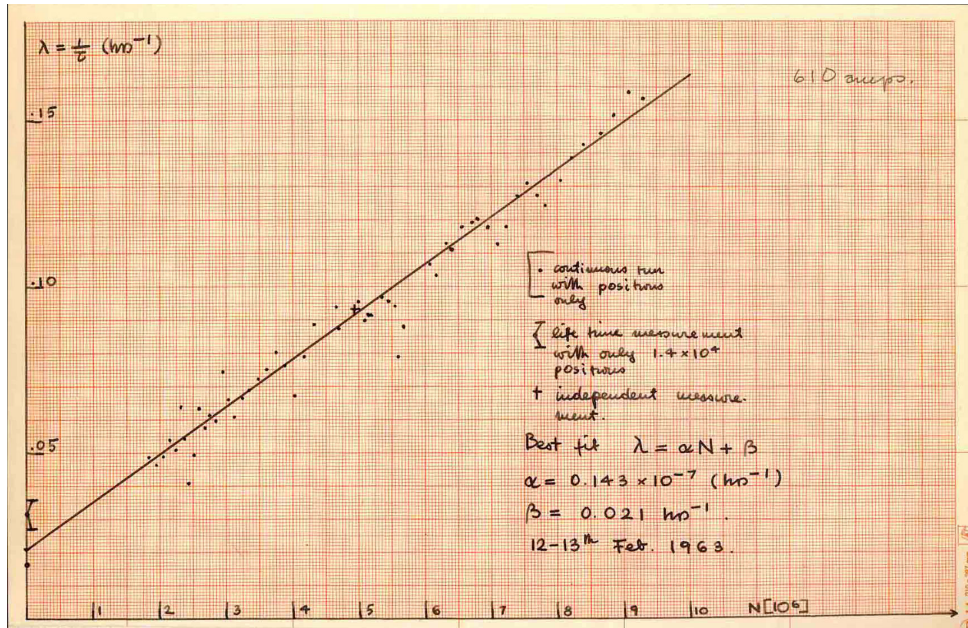 λ = 1/τ (hrs⁻¹)
610 amps.
.15
.10
.05
• continuous run
with positrons
only
life time measurement
with only 1.4 × 10⁴
positrons
+ independent measure-
ment.
Best fit λ = αN + β
α = 0.143 × 10⁻⁷ (hrs⁻¹)
β = 0.021 hrs⁻¹.
12-13th Feb. 1963.
1 2 3 4 5 6 7 8 9 10 N[10⁶]